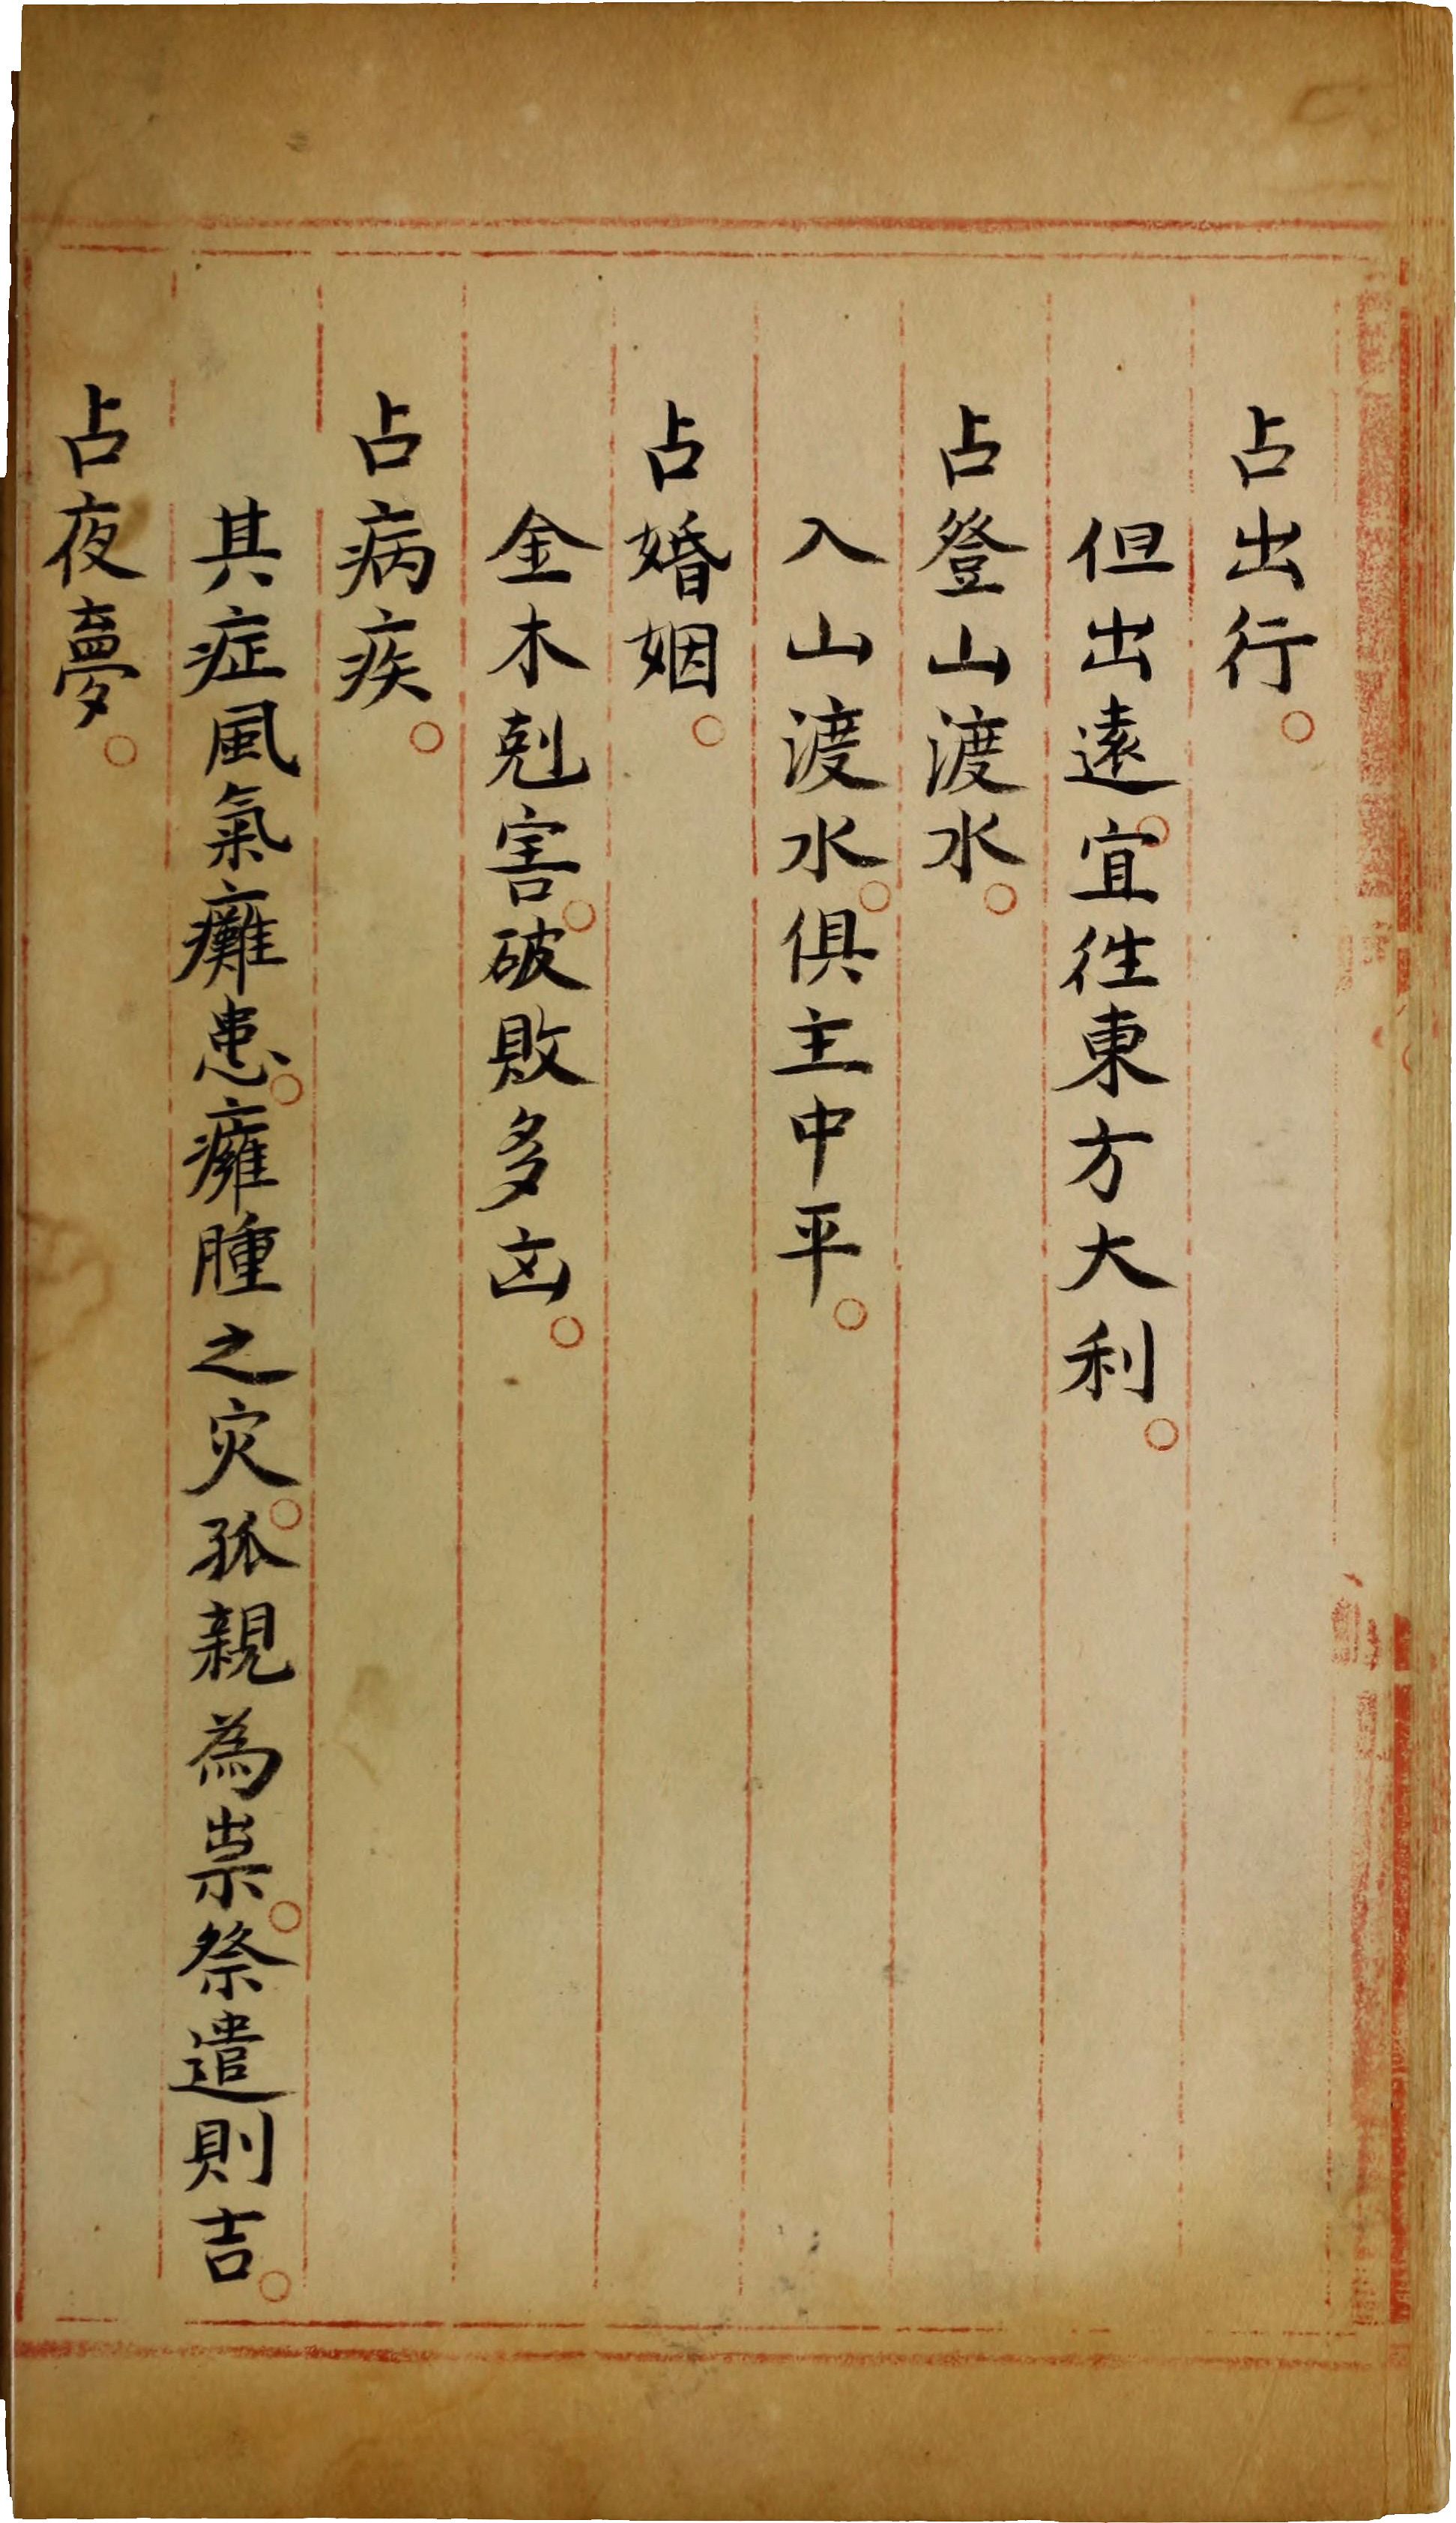 占出行。
但出遠。宜徃東方大利。
占登山渡水。
入山渡水。俱主中平。
占婚姻。
金木剋害。破敗多㐫。
占病疾。
其症風氣癱患。癰腫之灾。孤親為祟。祭遣則吉。
占夜夢。